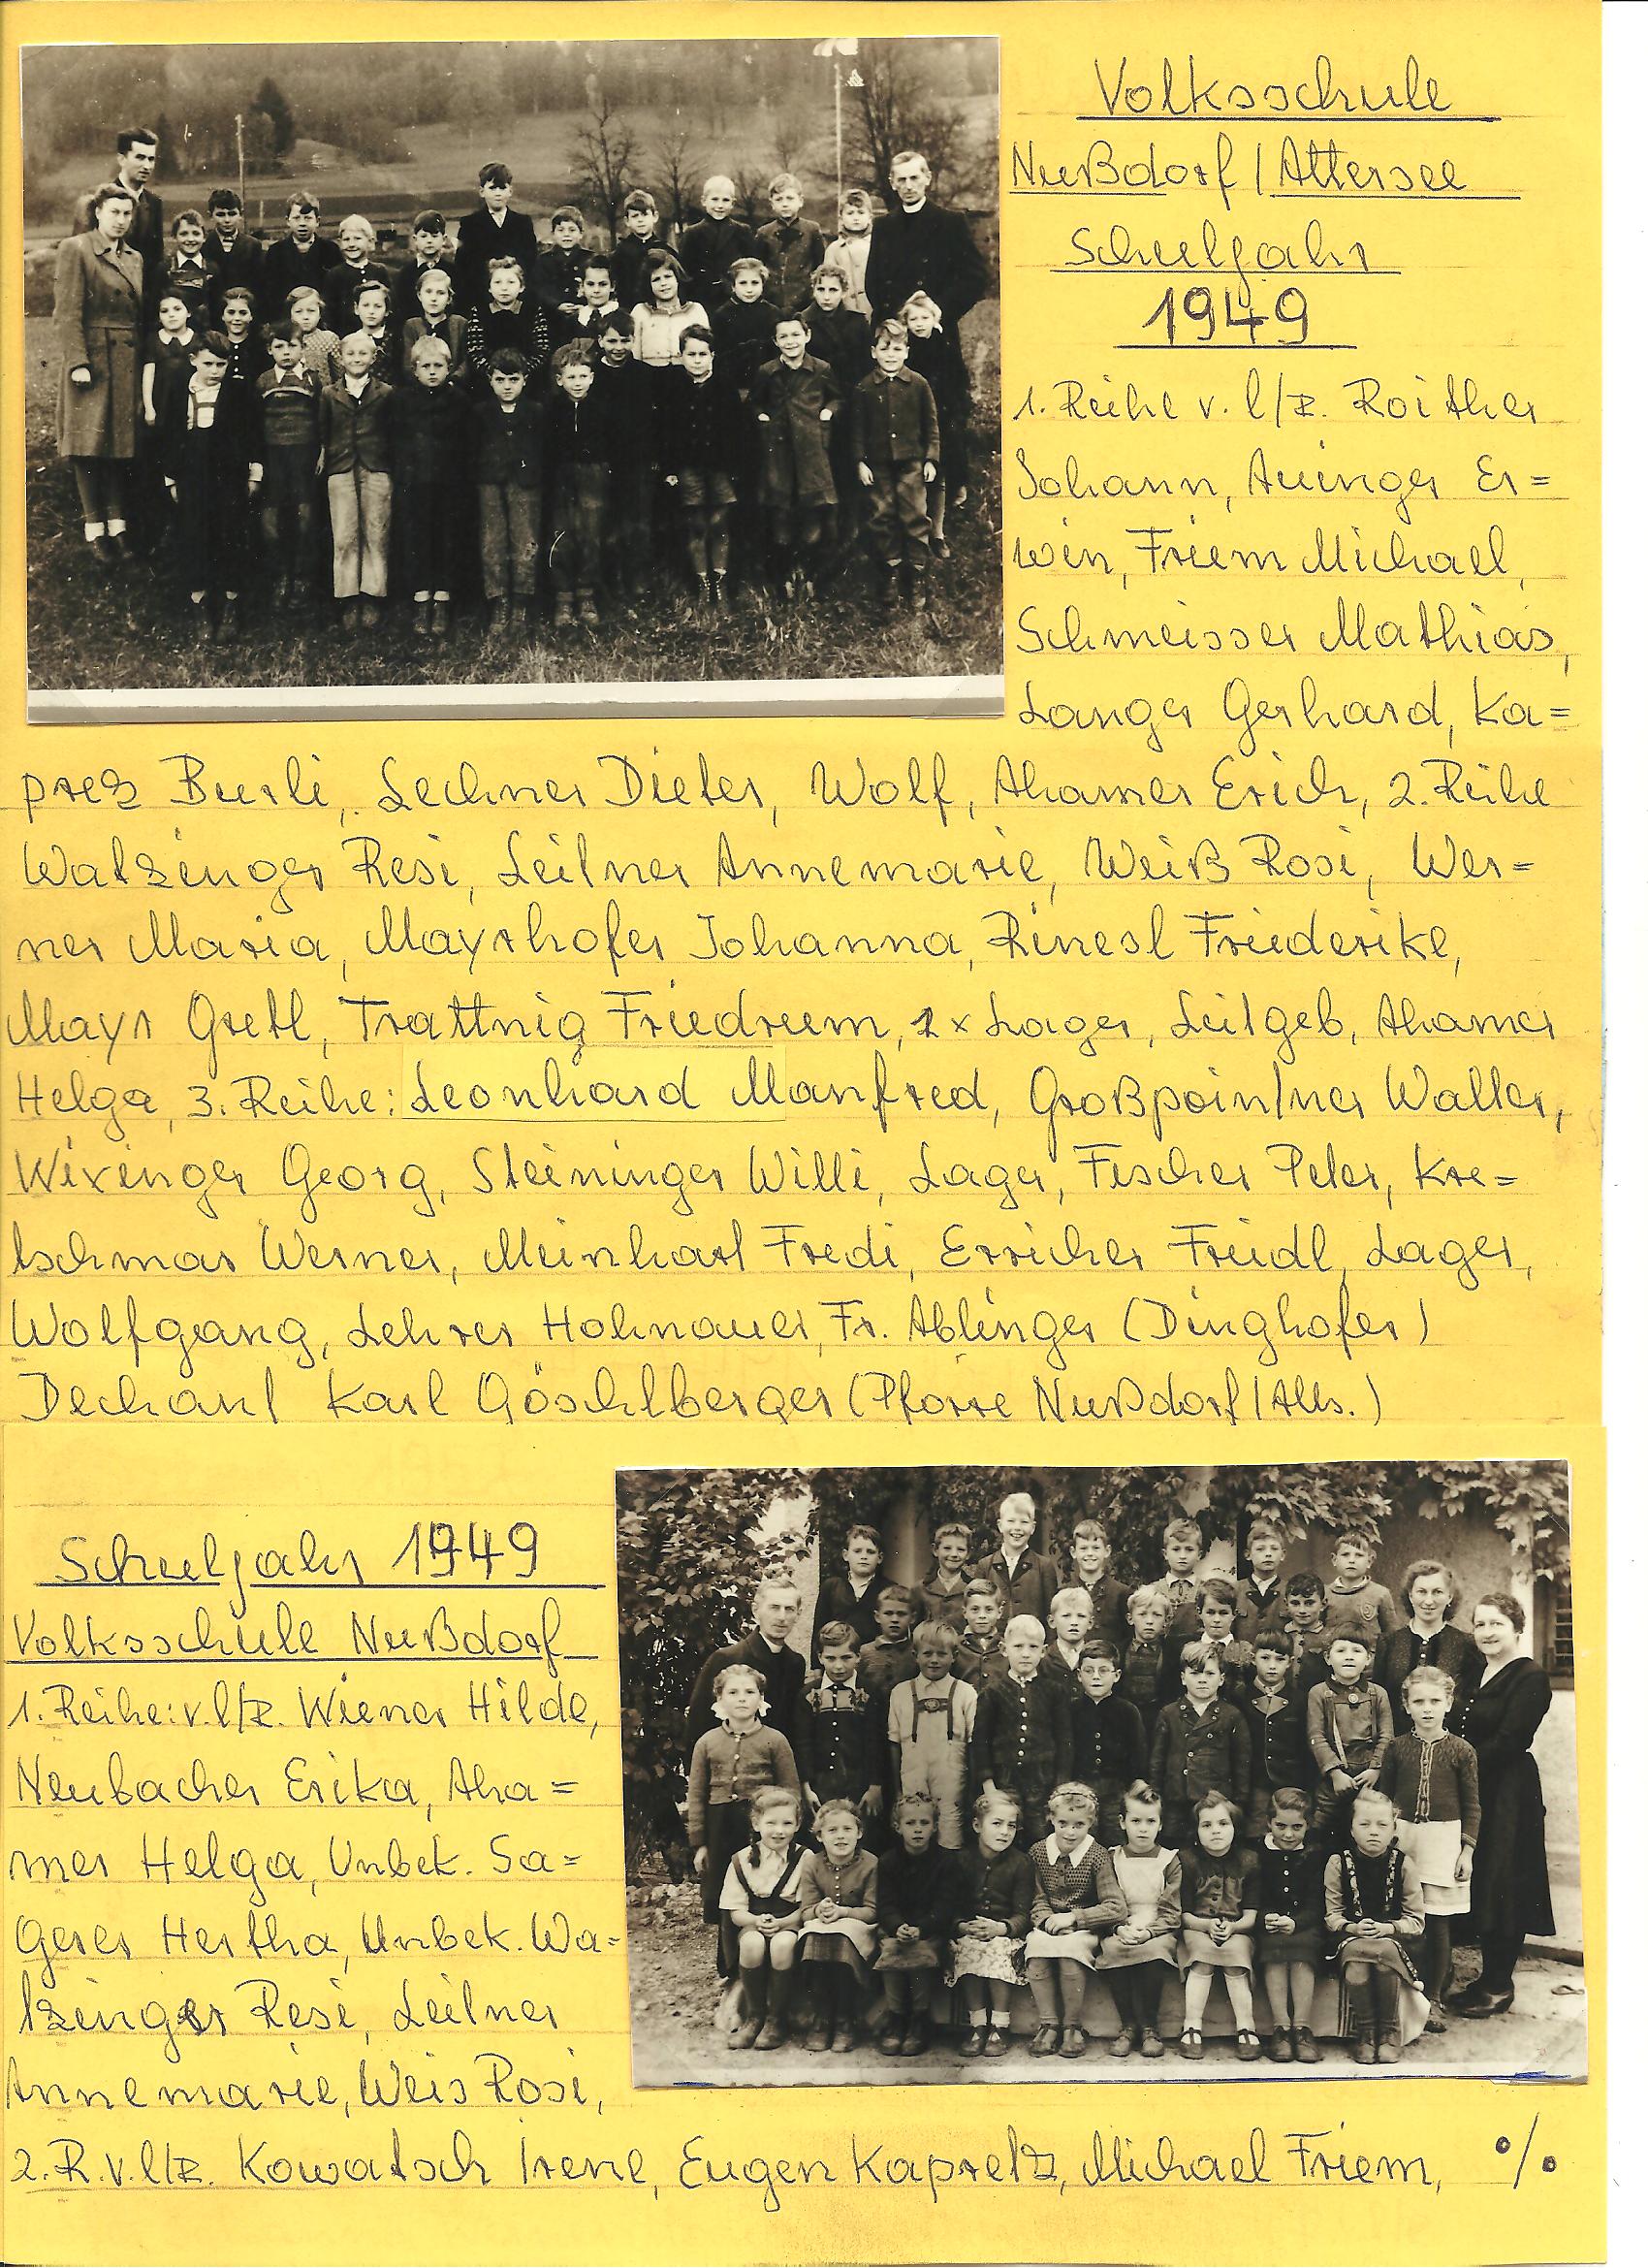 Volksschule
Nußdorf/Attersee
Schuljahr
1949
1. Reihe v. l/r. Roither
Johann, Auinger Er=
win, Friem Michael,
Schmeisser Mathias,
Langer Gerhard, Ka=
prez Burli, Lechner Dieter, Wolf, Ahamer Erich, 2. Reihe
Watzinger Resi, Leitner Annemarie, Weiß Rosi, Wer=
ner Maria, Mayrhofer Johanna, Rinesl Friederike,
Mayr Gretl, Trattnig Friedrum, 2x Lager, Leitgeb, Ahamer
Helga, 3. Reihe: Leonhard Manfred, Großpointner Walter,
Wixinger Georg, Steininger Willi, Lager, Fischer Peter, Kre=
tschmar Werner, Meinhart Fredi, Erricher Friedl, Lager,
Wolfgang, Lehrer Hohnauer, Fr. Ablinger (Dinghofer)
Dechant Karl Göschlberger (Pfarre Nußdorf/Atts.)
Schuljahr 1949
Volksschule Nußdorf
1. Reihe: v. l/r. Wiener Hilde,
Neubacher Erika, Aha=
mer Helga, Unbek. Sa=
Gerer Hertha, Unbek. Wa=
tzinger Resi, Leitner
Annemarie, Weis Rosi,
2. R. v. l/r. Kowatsch Irene, Eugen Kapretz, Michael Friem, %